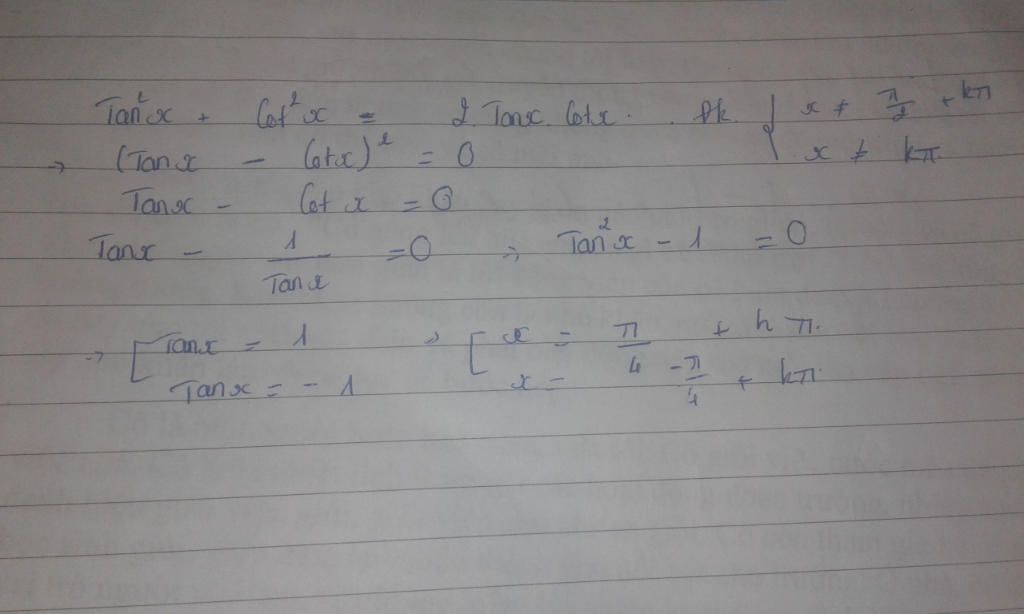 Tan²x + Cot²x = 2 Tanx. Cotx. Đk { x ≠ π/2 + kπ
x ≠ kπ.
→ (Tanx - Cotx)² = 0
Tanx - Cotx = 0
Tanx - 1/Tanx = 0 → Tan²x - 1 = 0
→ [ Tanx = 1 → [ x = π/4 + kπ.
Tanx = -1 x = -π/4 + kπ